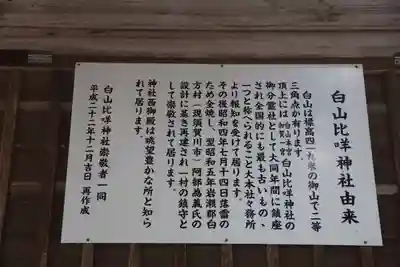 白山比咩神社由来
白山は標高四一九米の御山で二等
三角点か有ります。
頂上には加賀一ノ宮白山比咩神社の
御分霊社として大同年間に鎮座
され全国的にも最も古いもの、
一つと称へられること大本社々務所
より報知を受けて居ります。
その後昭和四年七月十四日落雷の
ため全焼し、翌昭和五年岩瀬郡白
方村(現須賀川市)阿部為義氏の
設計に基き再建され一村の鎮守と
して崇敬されて居ります。
神社西御殿は眺望豊かな所と知ら
れて居ります。
白山比咩神社崇敬者一同
平成二十二年十二月吉日 再作成